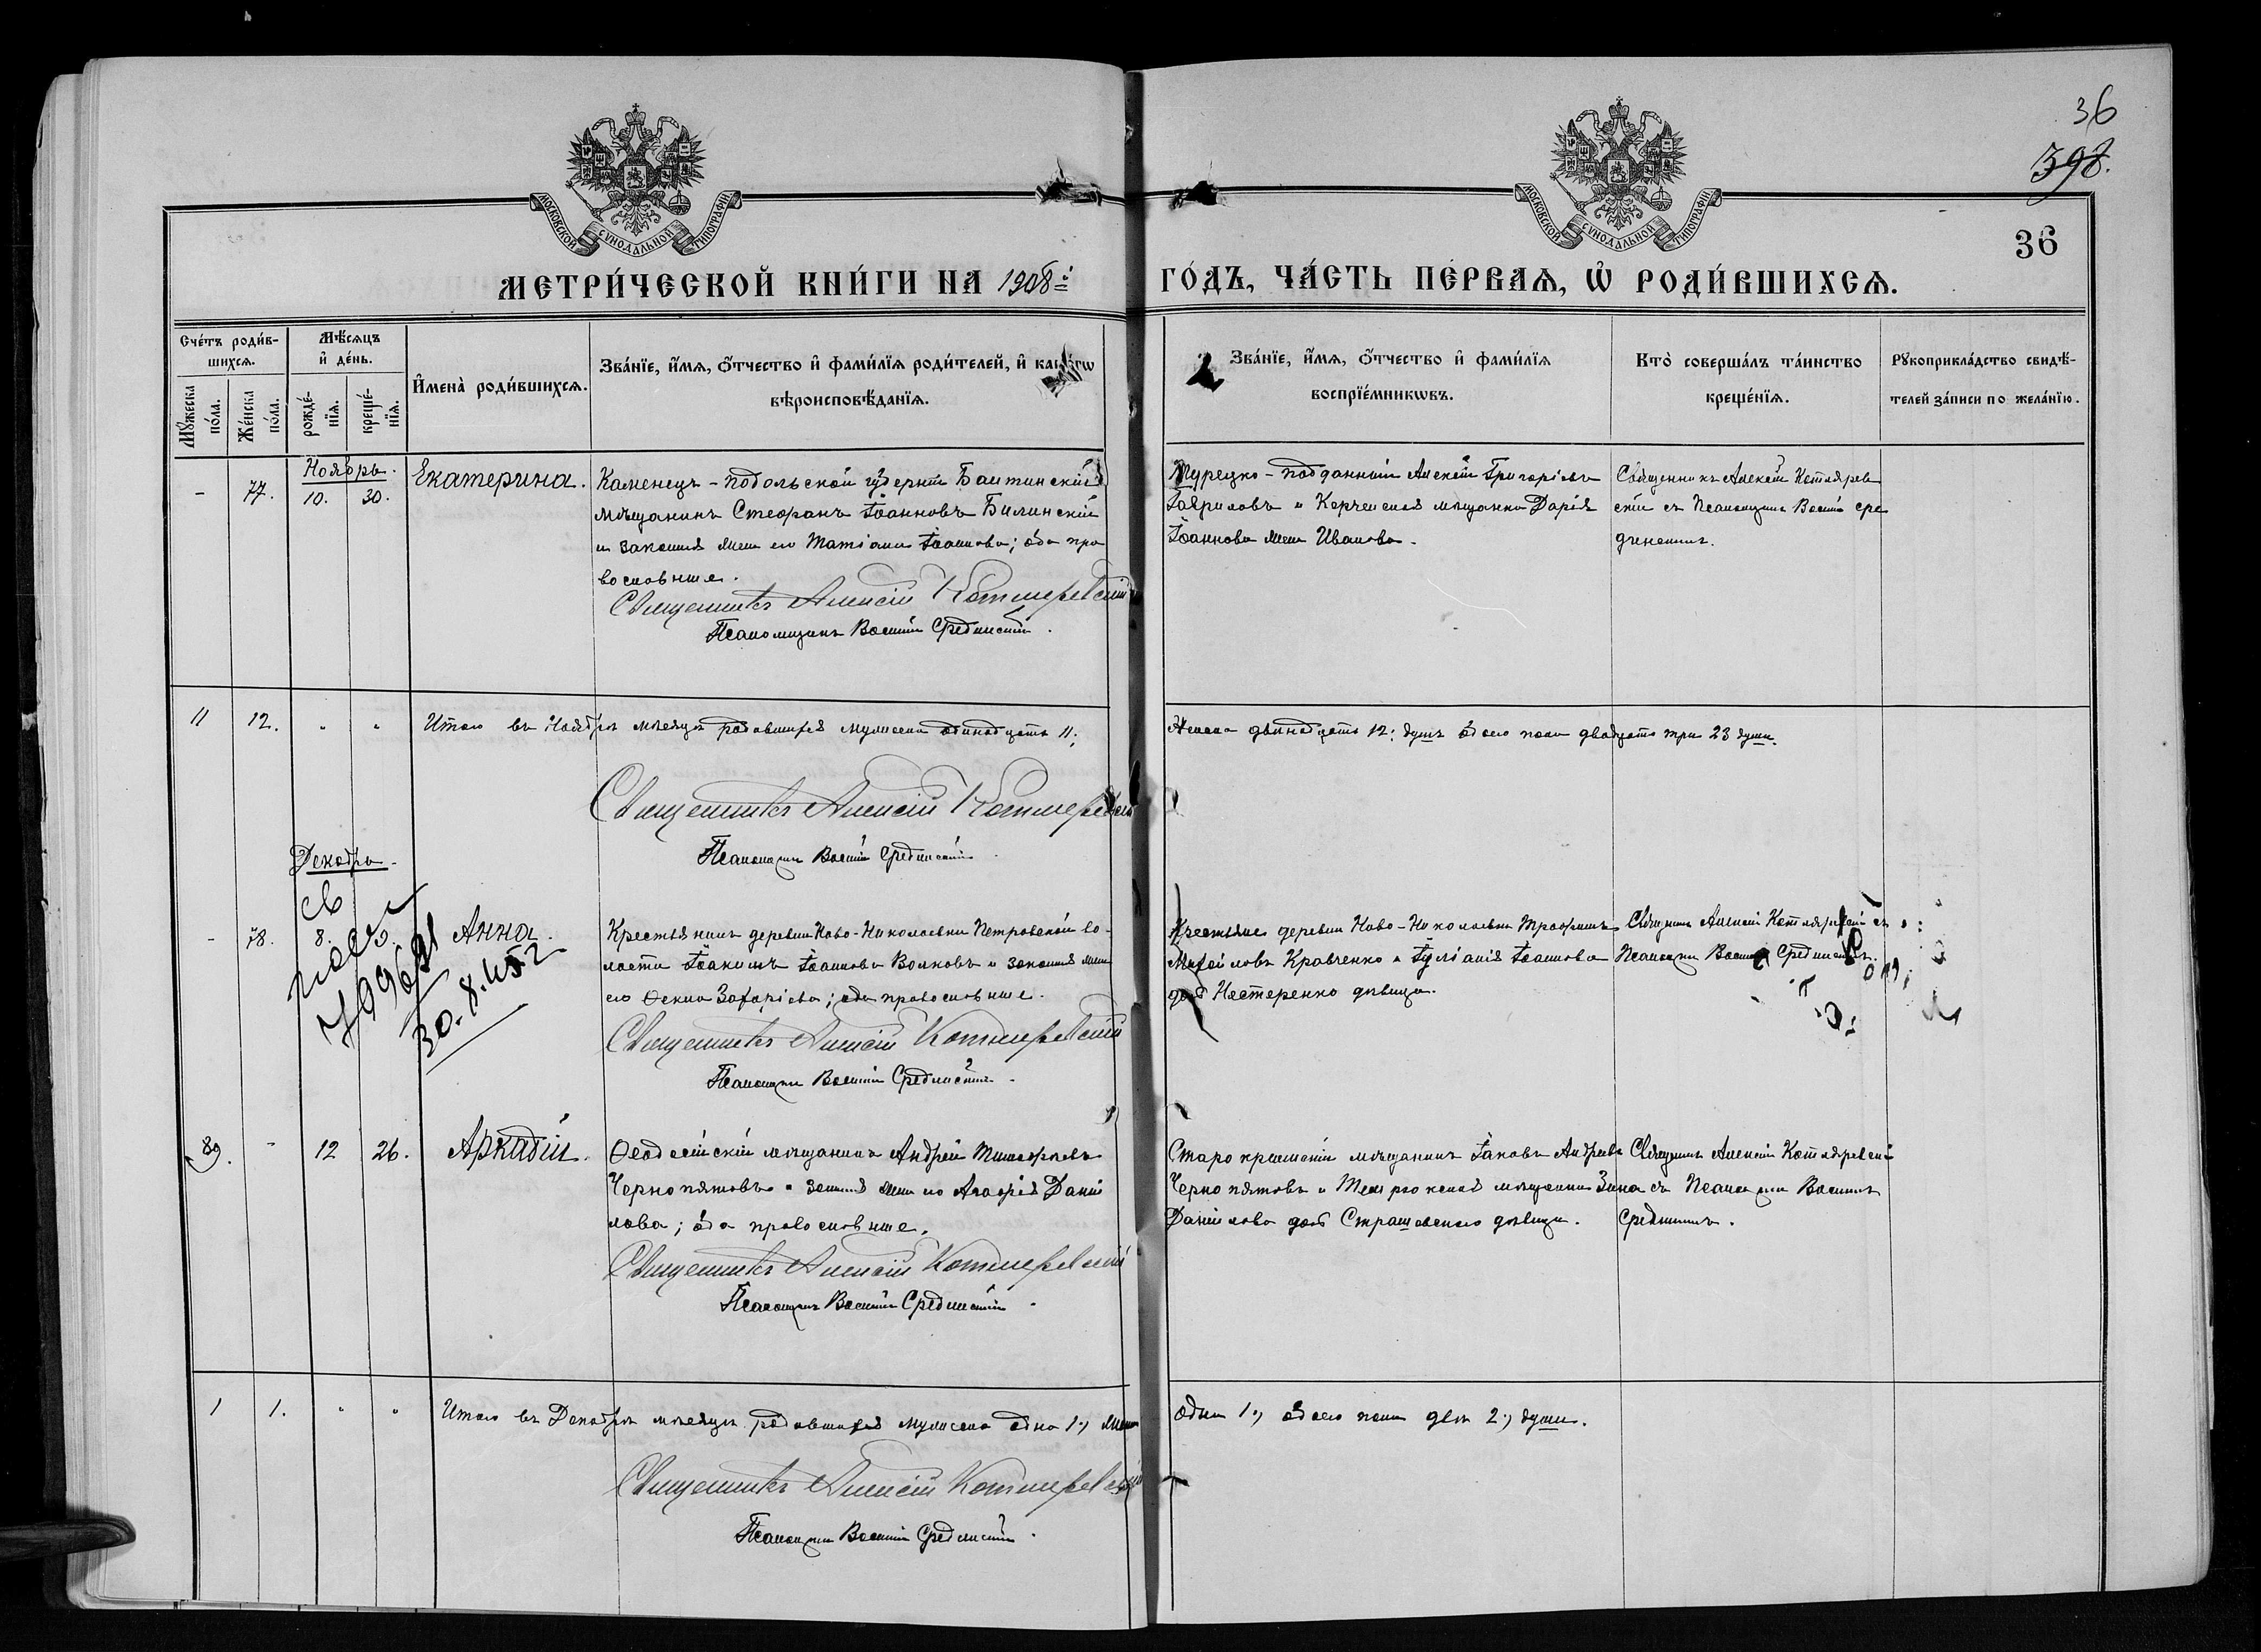 36
398.
36
МОСКОВСКОЙ СѴНОДАЛЬНОЙ ТИПОГРАФІИ
МОСКОВСКОЙ СѴНОДАЛЬНОЙ ТИПОГРАФІИ
МЕТРИ́ЧЕСКОЙ КНИ́ГИ НА 1908й ГО́ДЪ, ЧА́СТЬ ПЕ́РВАѦ, Ѡ҆ РОДИ́ВШИХСѦ.
Сче́тъ роди́в-
шихсѧ.
Мꙋ́жеска по́ла.
Же́нска по́ла.
Мѣ́сѧцъ
и҆ де́нь.
рожде́-
нїѧ.
креще́-
нїѧ.
И҆мена̀ роди́вшихсѧ.
Зва́нїе, и҆́мѧ, ѻ҆́тчество и҆ фами́лїѧ роди́телей, и҆ како́гѡ
вѣроисповѣ́данїѧ.
Зва́нїе, и҆́мѧ, ѻ҆́тчество и҆ фами́лїѧ
воспрїе́мникѡвъ.
Кто̀ соверша́лъ та́инство
креще́нїѧ.
Рꙋкоприкла́дство свидѣ́-
телей за́писи по жела́нїю.
Ноябрь.
- 77. 10. 30. Екатерина.
Каменецъ-Подольской губерніи Балтинскій
мѣщанинъ Стефанъ Іоанновъ Билинскій
и законная жена его Татіана Іоаннова; оба пра
вославные.
Священникъ Алексій Котляревскій
Псаломщикъ Василій Срединскій.
Турецко-подданный Алексій Григоріевъ
Гавриловъ и Керченская мѣщанка Дарія
Іоаннова жена Иванова.
Священникъ Алексій Котлярев
скій съ Псаломщикомъ Василіемъ Сре
динскимъ.
11 12. " " Итого въ Ноябрѣ мѣсяцѣ родившихся мужеска одинадцать 11;
Женска двѣнадцать 12; душъ обоего пола двадцать три 23 души.
Священникъ Алексій Котляревскій
Псаломщикъ Василій Срединскій.
Декабрь.
- 78. 8. Анна.
св
30.8.45г
Крестьянинъ деревни Ново-Николаевки Петровской во-
лости Іоакимъ Іоанновъ Волковъ и законная жена
его Фекла Захаріева; оба православные.
Священникъ Алексій Котляревскій
Псаломщикъ Василій Срединскій.
Крестьяне деревни Ново-Николаевки Трофимъ
Михайловъ Кравченко и Іуліанія Іоаннова
дочь Нестеренко дѣвица.
Священникъ Алексій Котляревскій съ
Псаломщикомъ Василіемъ Срединскимъ.
39. - 12 26. Аркадій.
Феодосійскій мѣщанинъ Андрей Тимофеевъ
Чернопятовъ и законная жена его Агафія Даніи
лова; оба православные.
Священникъ Алексій Котляревскій
Псаломщикъ Василій Срединскій.
Старокрымскій мѣщанинъ Іаковъ Андреевъ
Чернопятовъ и мѣщанка Зина
Даніилова дочь дѣвица.
Священникъ Алексій Котляревскій
съ Псаломщикомъ Василіемъ
Срединскимъ.
1 1. " " Итого въ Декабрѣ мѣсяцѣ родившихся мужеска одна 1, женска
одна 1, обоего пола двѣ 2, души.
Священникъ Алексій Котляревскій
Псаломщикъ Василій Срединскій.